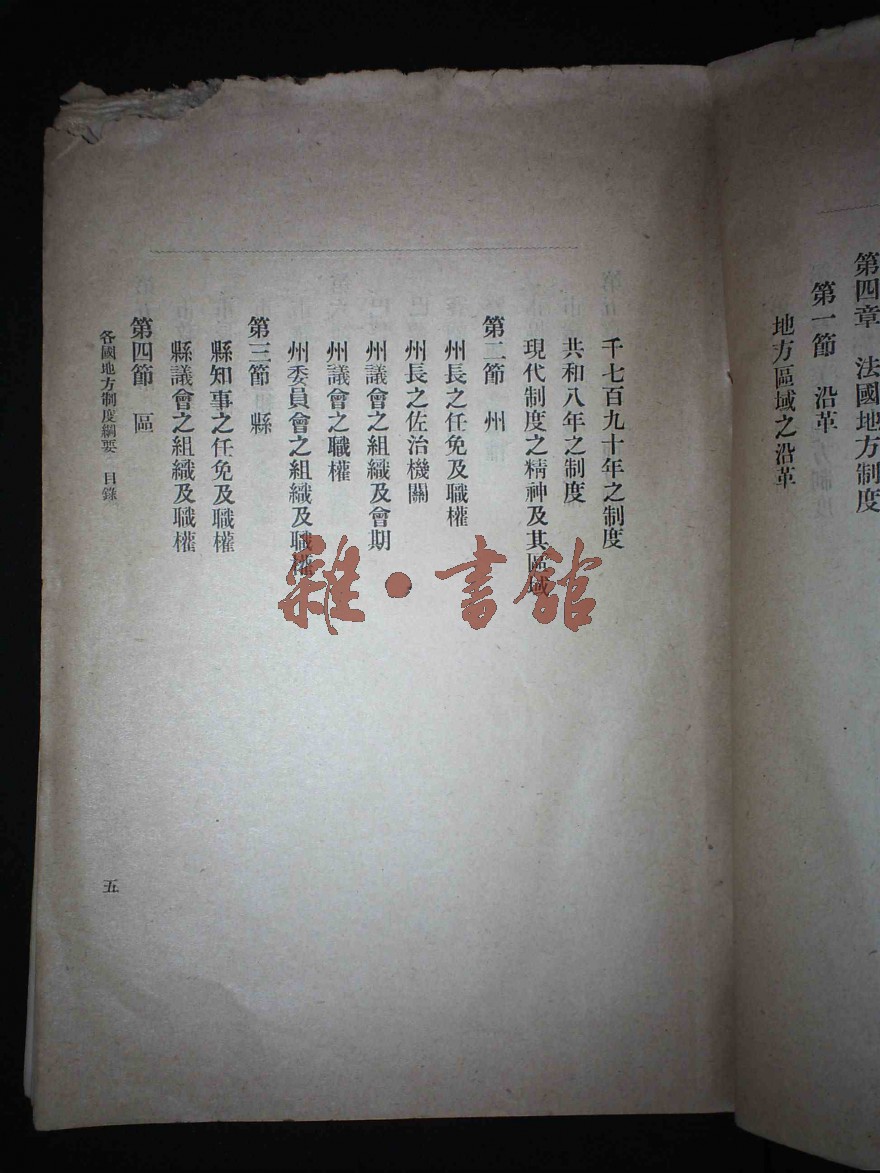 第四章　法國地方制度
第一節　沿革
地方區域之沿革
千七百九十年之制度
共和八年之制度
現代制度之精神及其區域
第二節　州
州長之任免及職權
州長之佐治機關
州議會之組織及會期
州議會之職權
州委員會之組織及職權
第三節　縣
縣知事之任免及職權
縣議會之組織及職權
第四節　區
各國地方制度綱要　目錄
五
雜・書館